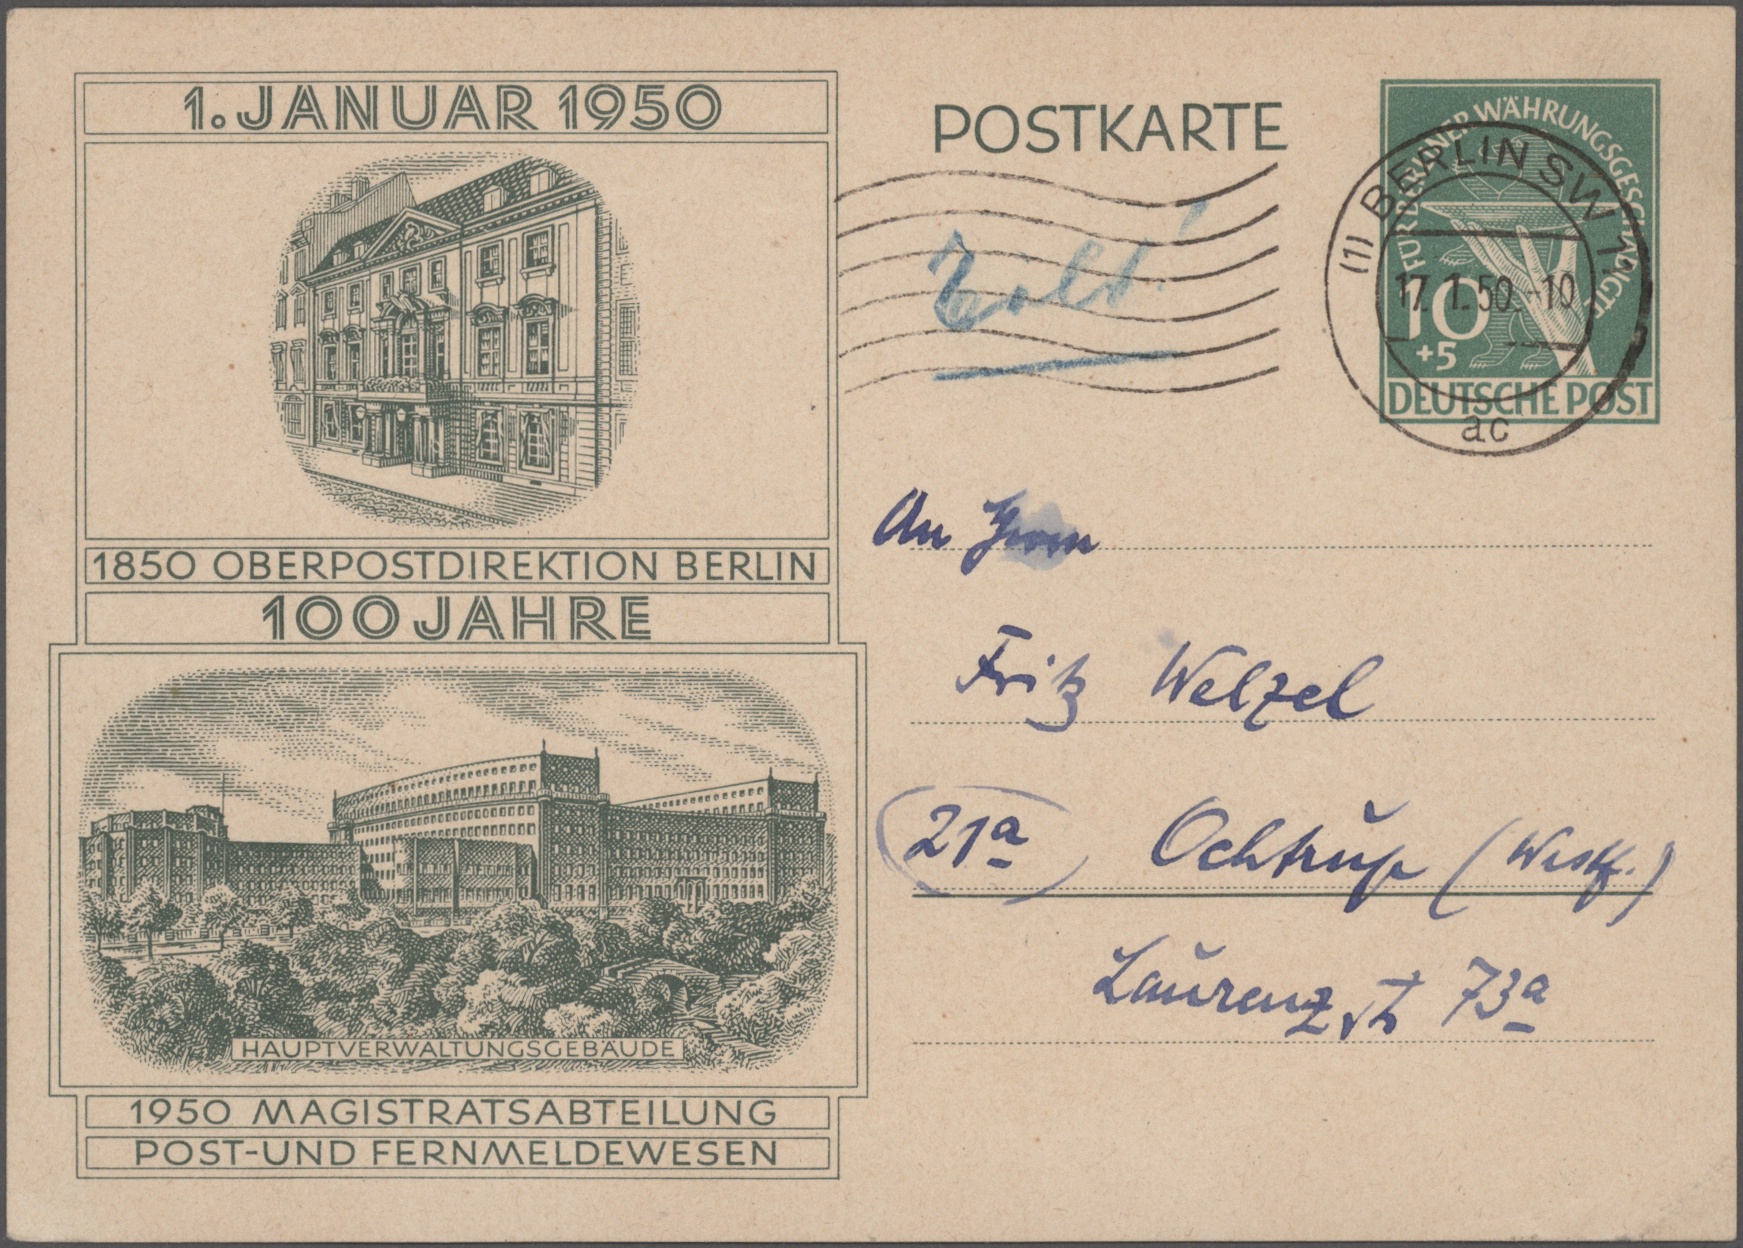 1. JANUAR 1950
1850 OBERPOSTDIREKTION BERLIN
100 JAHRE
HAUPTVERWALTUNGSGEBÄUDE
1950 MAGISTRATSABTEILUNG
POST-UND FERNMELDEWESEN
POSTKARTE
FÜR BERLINER WÄHRUNGSGESCHÄDIGTE
10
+5
DEUTSCHE POST
(1) BERLIN SW 11
17. 1. 50. -10
ac
An Herrn
Fritz Welzel
21a Ochtrup (Westf.)
Laurenz 73a